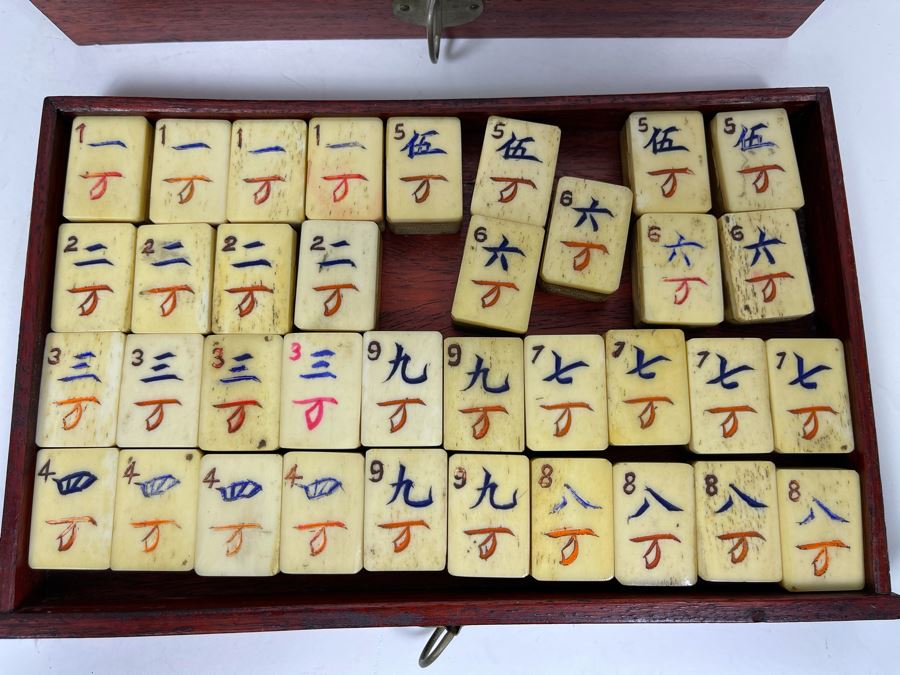 1 一 1 一 1 一 1 一 5 伍 5 伍 5 伍 5 伍
万 万 万 万 万 万 万 万
2 二 2 二 2 二 2 二 6 六 6 六 6 六 6 六
万 万 万 万 万 万 万 万
3 三 3 三 3 三 3 三 9 九 9 九 7 七 7 七 7 七 7 七
万 万 万 万 万 万 万 万 万 万
4 四 4 四 4 四 4 四 9 九 9 九 8 八 8 八 8 八 8 八
万 万 万 万 万 万 万 万 万 万